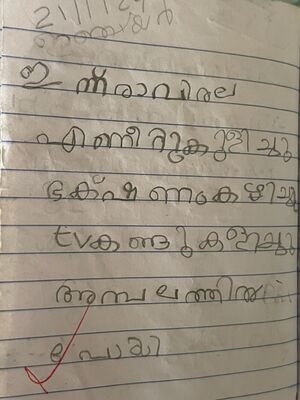 ഇന്ന് രാവിലെ
എണീറ്റുകുളിച്ചു
ഭക്ഷണംകഴിച്ചു
tvകണ്ടുകളിച്ചു
അമ്പലത്തിൽ
പോയി